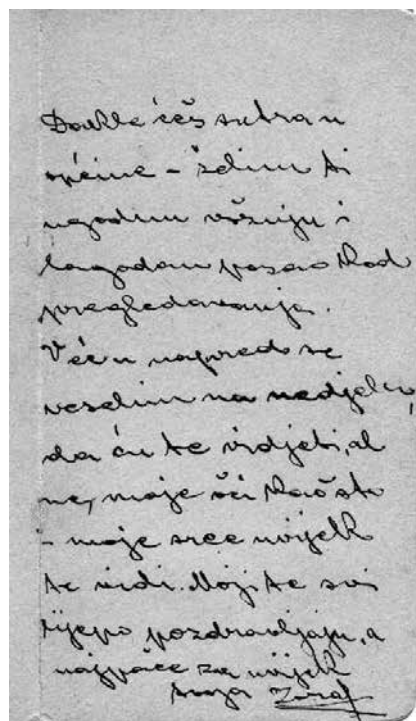 Dakle ićeš sutra u
općine - želim ti
ugodnu vožnju i
lagodan posao kod
pregledavanja.
Već u napred se
veselim na nedjelju,
da ću te vidjeti, al
ne, moje oči kao što
- moje srce uvijek
te vidi. Moji te svi
lijepo pozdravljaju, a
najpače za uvijek